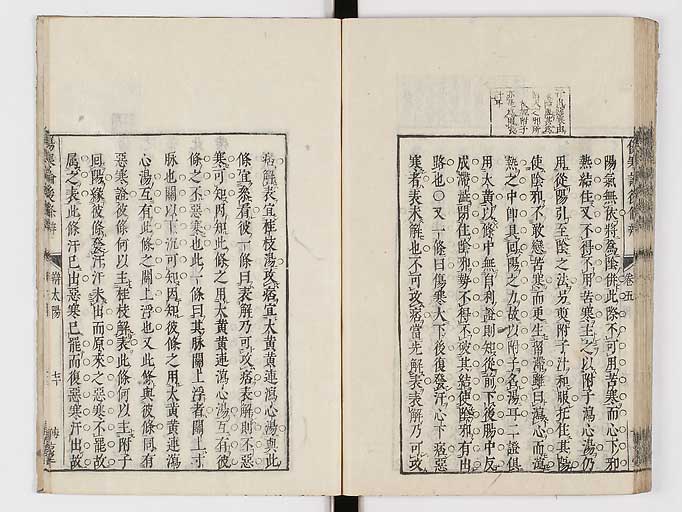 陽氣無依將爲陰併此際不可用苦寒而心下利
熱結住又不得不用苦寒主之以附子瀉心湯仍
用從陽引至陰之法另煎附子汁和服托住其陽
使陰邪不敢戀苦寒而更生留滯雖曰瀉心而萬
熱之中卽具回陽之力故以附子名湯耳二證俱
用大黃以條中無自利證則知從前下後腸中反
成滯澀閉住陰邪勢不得不破其結使陰邪有出
路也〇又一條曰傷寒大下後復發汗心下痞惡
寒者表未解也不可攻痞當先解表表解乃可攻
痞解表宜桂枝湯攻痞宜大黃黃連瀉心湯與此
條宜參看彼一條曰表解乃可攻痞表解則不惡
寒可知两知此條之用大黃黃連瀉心湯互有彼
條之不惡寒也此一條曰其脉關上浮者關上一寸
脉也關以下沉可知因知彼條之用大黃黃連瀉
心湯互有此條之關上浮也又此條與彼條同有
惡寒證彼條何以主桂枝解表此條何以主附子
回陽緣彼條發汗汗未出而原來之惡寒不罷故
属之表此條汗已出惡寒已罷而復惡寒汗出故
卷五
辨太陽